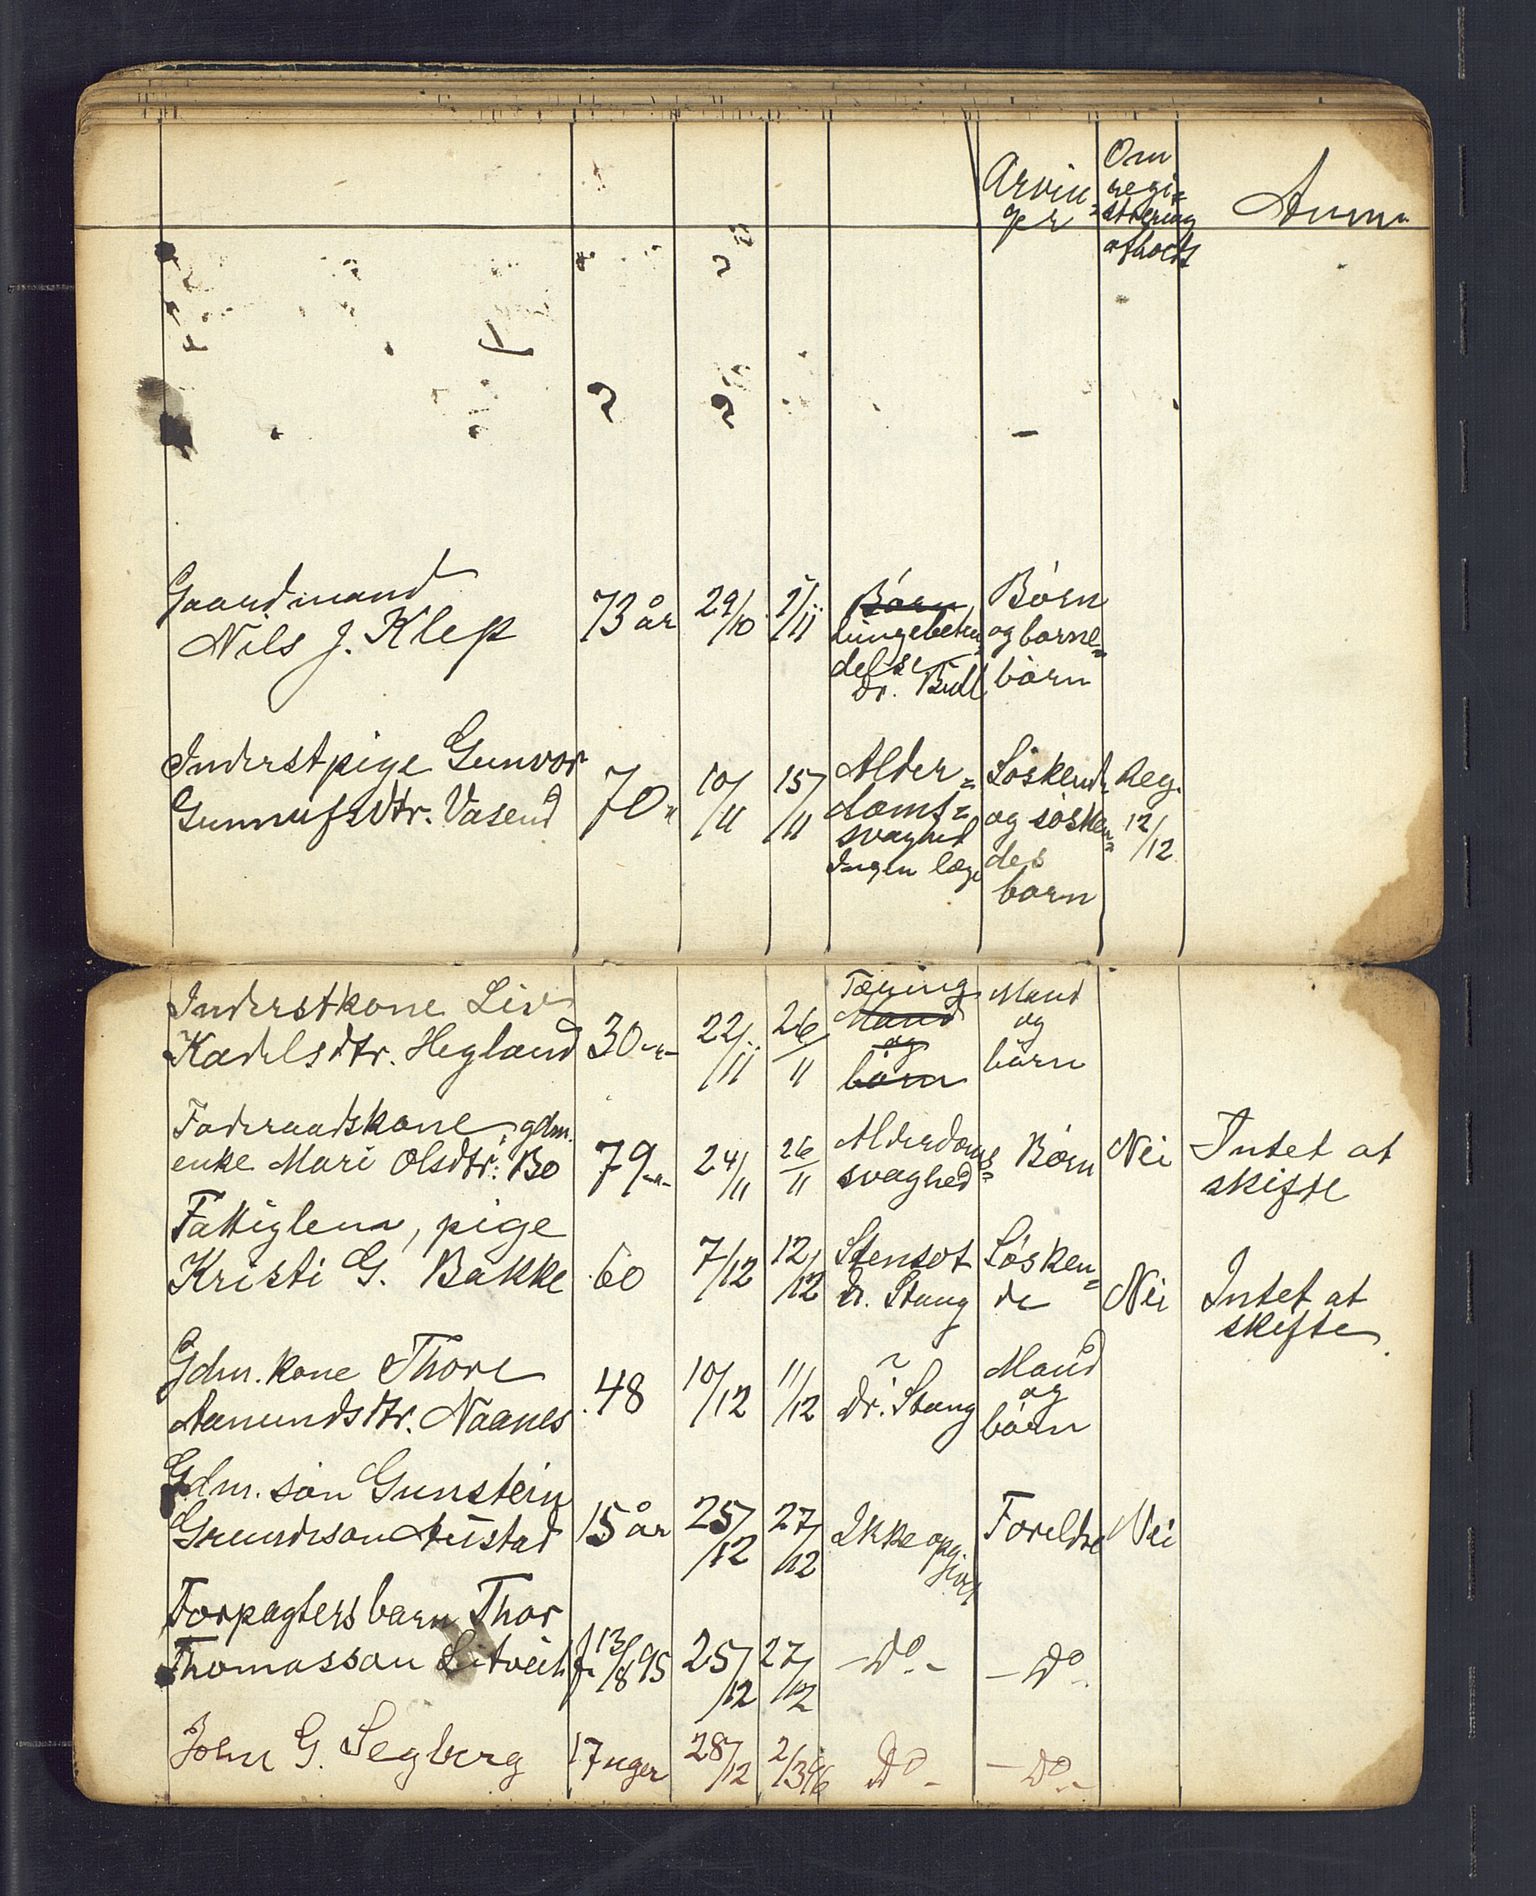 Arvin=
ger
Om
regi=
strering
afholdt
Anm.
Gaardmand
Nils J. Klep
73 år
29/10
1/11
Børn
Lungebeten=
delse
Dr. Bull
Børn
og barne=
børn
Inderstpige Gunvor
Gunnufsdtr. Vasend
70 "
10/11
15/11
Alder=
doms=
svaghed
Ingen læge
Søskende
og søsken=
des
børn
Reg.
12/12
Inderstkone Liv
Kædelsdtr. Hegland
30 -"-
22/11
26/11
Tæring
Mand
og
børn
Mand
og
børn
Føderaadskone, gdm.
enke Mari Olsdtr: Bø
79 -"-
24/11
26/11
Alderdoms=
svaghed
Børn
Nei
Intet at
skifte
Fattiglem, pige
Kristi G. Bakke
60
7/12
12/12
Stensot
Dr. Stang
Søsken=
de
Nei
Intet at
skifte
Gdm. kone Thore
Aamundsdtr. Naanes
48
10/12
11/12
?
Dr. Stang
Mand
og
børn
Gdm. søn Gunstein
15 år
25/12
27/12
Ikke opg
jivet
Foreldre
Nei
Forpagters barn Thor
Thomasson Litveit
f. 13/8 95
25/12
27/12
- Do. -
- Do -
John G. Segberg
17 uger
28/12
2/3 96
Do -
- Do. -